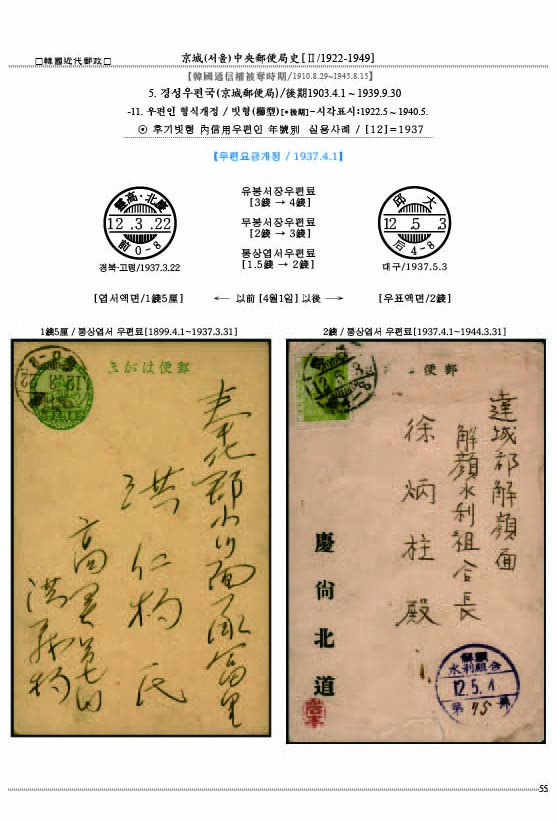 □韓國近代郵政□
京城(서울)中央郵便局史[Ⅱ/1922-1949]
【韓國通信權被奪時期/1910.8.29~1945.8.15】
5. 경성우편국(京城郵便局)/後期1903.4.1 ~ 1939.9.30
-11. 우편인 형식개정 / 빗형(櫛型)[•後期]-시각표시:1922.5 ~ 1940.5.
⊙ 후기빗형 內信用우편인 年號別 실용사례 / [12]=1937
【우편요금개정 / 1937.4.1】
慶北·高靈
12.3.22
前0-8
경북·고령/1937.3.22
유봉서장우편료
[3錢 → 4錢]
무봉서장우편료
[2錢 → 3錢]
통상엽서우편료
[1.5錢 → 2錢]
大邱
12.5.3
后4-8
대구/1937.5.3
[엽서액면/1錢5厘]
←─ 以前 [4월1일] 以後 ─→
[우표액면/2錢]
1錢5厘 / 통상엽서 우편료[1899.4.1~1937.3.31]
郵便はがき
奉化郡小川面
洪仁杓氏
高靈
洪
2錢 / 통상엽서 우편료[1937.4.1~1944.3.31]
郵便
達城郡解顔面
解顔水利組合長
徐炳柱殿
慶尙北道
解顔
水利組合
12.5.4
第75號
55